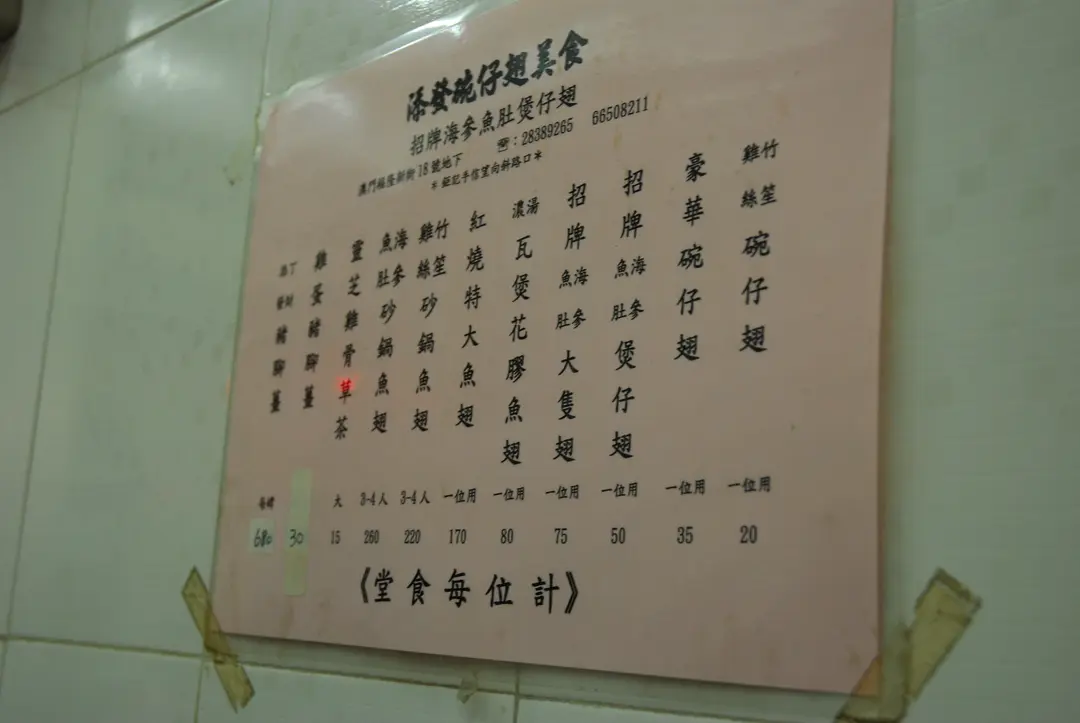 添發碗仔翅美食
招牌海參魚肚煲仔翅
澳門福隆新街18號地下 ☎:28389265 66508211
*鉅記手信望向斜路口*
雞絲竹笙碗仔翅 一位用 20
豪華碗仔翅 一位用 35
招牌海參魚肚煲仔翅 一位用 50
招牌海參魚肚大隻翅 一位用 75
濃湯瓦煲花膠魚翅 一位用 80
紅燒特大魚翅 一位用 170
竹笙雞絲砂鍋魚翅 3-4人 220
海參魚肚砂鍋魚翅 3-4人 260
靈芝雞骨草茶 大 15
雞蛋豬腳薑 30
添發 豬腳薑 每碑 680
《堂食每位計》